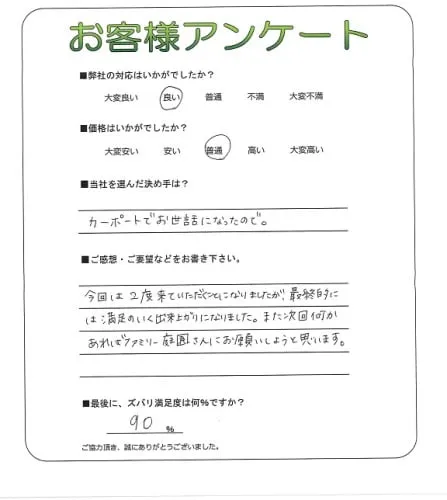 お客様アンケート
■弊社の対応はいかがでしたか?
大変良い 良い 普通 不満 大変不満
■価格はいかがでしたか?
大変安い 安い 普通 高い 大変高い
■当社を選んだ決め手は?
カーポートでお世話になったので。
■ご感想・ご要望などをお書き下さい。
今回は2度来ていただくことになりましたが、最終的に
は満足のいく出来上がりになりました。また次回何か
あればファミリー庭園さんにお願いしようと思います。
■最後に、ズバリ満足度は何%ですか?
90 %
ご協力頂き、誠にありがとうございました。